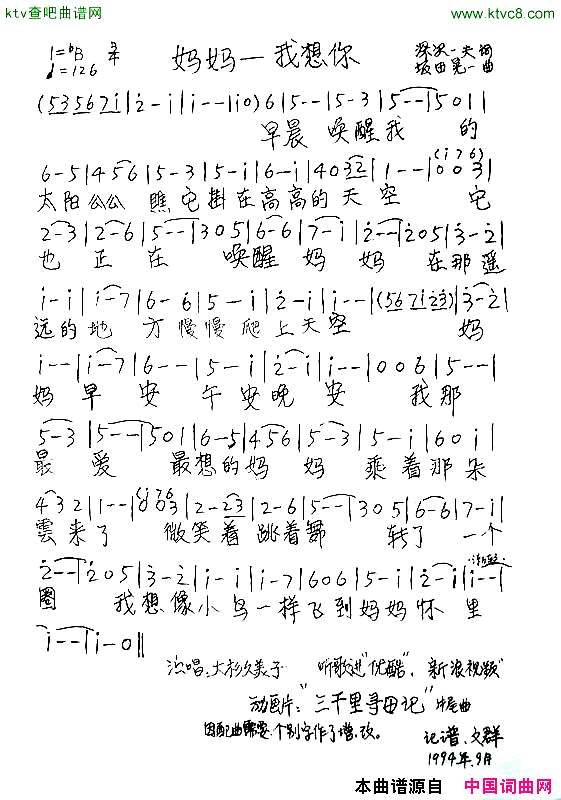 ktv查吧曲谱网 www.ktvc8.com
1=♭B 3/4 妈妈—我想你 深沢一夫 词
♩=126 坂田晃一 曲
(5 3 5 6 7 i | 2̇ - i | i - - | i 0) 6 | 5 - - | 5 - 3 | 5 - - | 5 0 1 |
早晨 唤醒我 的
6 - 5 | 4 5 6 | 5 - 3 | 5 - i | 6 - i | 4 0 3 2 | 1 - - | (i 7 6) 0 0 3 |
太阳公公 瞧它掛在高高的天空 它
2 - 3 | 2 - 6 | 5 - - | 3 0 5 | 6 - 6 | 7 - i | 2̇ - - | 2̇ 0 5 | 3̇ - 2̇ |
也 正 在 唤醒 妈 妈 在那遥
i - i | i - 7 | 6 - 6 | 5 - i | 2̇ - i | i - - | (5 6 7 i 2̇ 3̇) | 3̇ - 2̇ |
远的地 方慢慢爬上天空 妈
i - - | i - 7 | 6 - - | 5 - i | 2̇ - i | i - - | 0 0 6 | 5 - - |
妈 早 安 午安晚 安 我那
5 - 3 | 5 - - | 5 0 1 | 6 - 5 | 4 5 6 | 5 - 3 | 5 - i | 6 0 i |
最 爱 最想的妈 妈 乘着那朵
4 3 2 | 1 - - | (i 7 6) 0 0 3 | 2 - 2 3 | 2 - 6 | 5 - - | 3 0 5 | 6 - 6 | 7 - i |
雲来了 微笑着跳着舞 转了一个
2̇ - - | 2̇ 0 5 | 3̇ - 2̇ | i - i | i - 7 | 6 0 6 | 5 - i | 2̇ - i | i - - |
圈 我想像小鸟一样飞到妈妈怀 里
i - - | i - 0 ‖
演唱:大杉久美子 听歌进"优酷"、新浪视频"
动画片:"三千里寻母记"片尾曲
因配曲需要个别字作了增、改。 记谱、文群
1994年.9月
本曲谱源自 中国词曲网